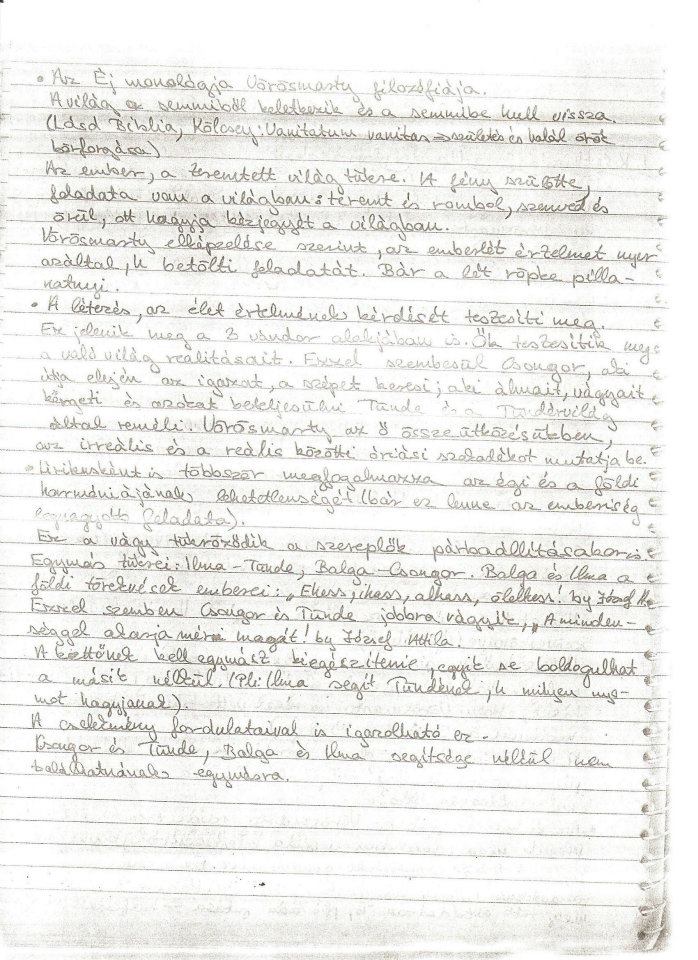 • Az Éj monológja Vörösmarty filozófiája.
A világ a semmiből keletkezik és a semmibe hull vissza.
(Lásd Biblia, Kölcsey: Vanitatum vanitas → születés és halál örök
körforgása)
Az ember, a teremtett világ tükre. A fény szülötte,
feladata van a világban: teremt és rombol, szenved és
örül, ott hagyja kézjegyét a világban.
Vörösmarty elképzelése szerint, az emberlét értelmet nyer
azáltal, h betölti feladatát. Bár a lét röpke pilla-
natnyi.
• A létezés, az élet értelmének kérdését testesíti meg.
Ez jelenik meg a 3 vándor alakjában is. Ők testesítik meg
a való világ realitásait. Ezzel szembesül Csongor, aki
útja elején az igazat, a szépet keresi; aki álmait, vágyait
kergeti és azokat beteljesülni Tünde és a Tündérvilág
által reméli. Vörösmarty az ő összeütközésükben,
az irreális és a reális közötti óriási szakadékot mutatja be.
• Lírikusként is többször megfogalmazza az égi és a földi
harmóniájának lehetetlenségét (bár ez lenne az emberiség
legnagyobb feladata).
Ez a vágy tükröződik a szereplők párbaállításakor is.
Egymás tükrei: Ilma-Tünde, Balga-Csongor. Balga és Ilma a
földi törekvések emberei: „Ehess, ihass, alhass, ölelhess! by József A.
Ezzel szemben Csongor és Tünde jobbra vágyik, „A minden-
séggel akarja mérni magát! by József Attila.
A kettőnek kell egymást kiegészítenie, egyik se boldogulhat
a másik nélkül. (Pl: Ilma segít Tündének, h milyen nyo-
mot hagyjanak).
A cselekmény fordulataival is igazolható ez.
Csongor és Tünde, Balga és Ilma segítsége nélkül nem
találhatnának egymásra.